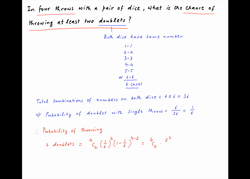 In four throws with a pair of dice, what is the chance of
throwing at least two doublets?
Both dice have same number
1-1
2-2
3-3
4-4
5-5
or 6-6
6 cases
Total combinations of numbers on both dice = 6×6 = 36
⇒ Probability of doublet with single throws = 6/36 = 1/6
∴ Probability of throwing
2 doublets = ⁴C₂ (1/6)² (1-1/6)⁴⁻² = ⁴C₂ · 5²